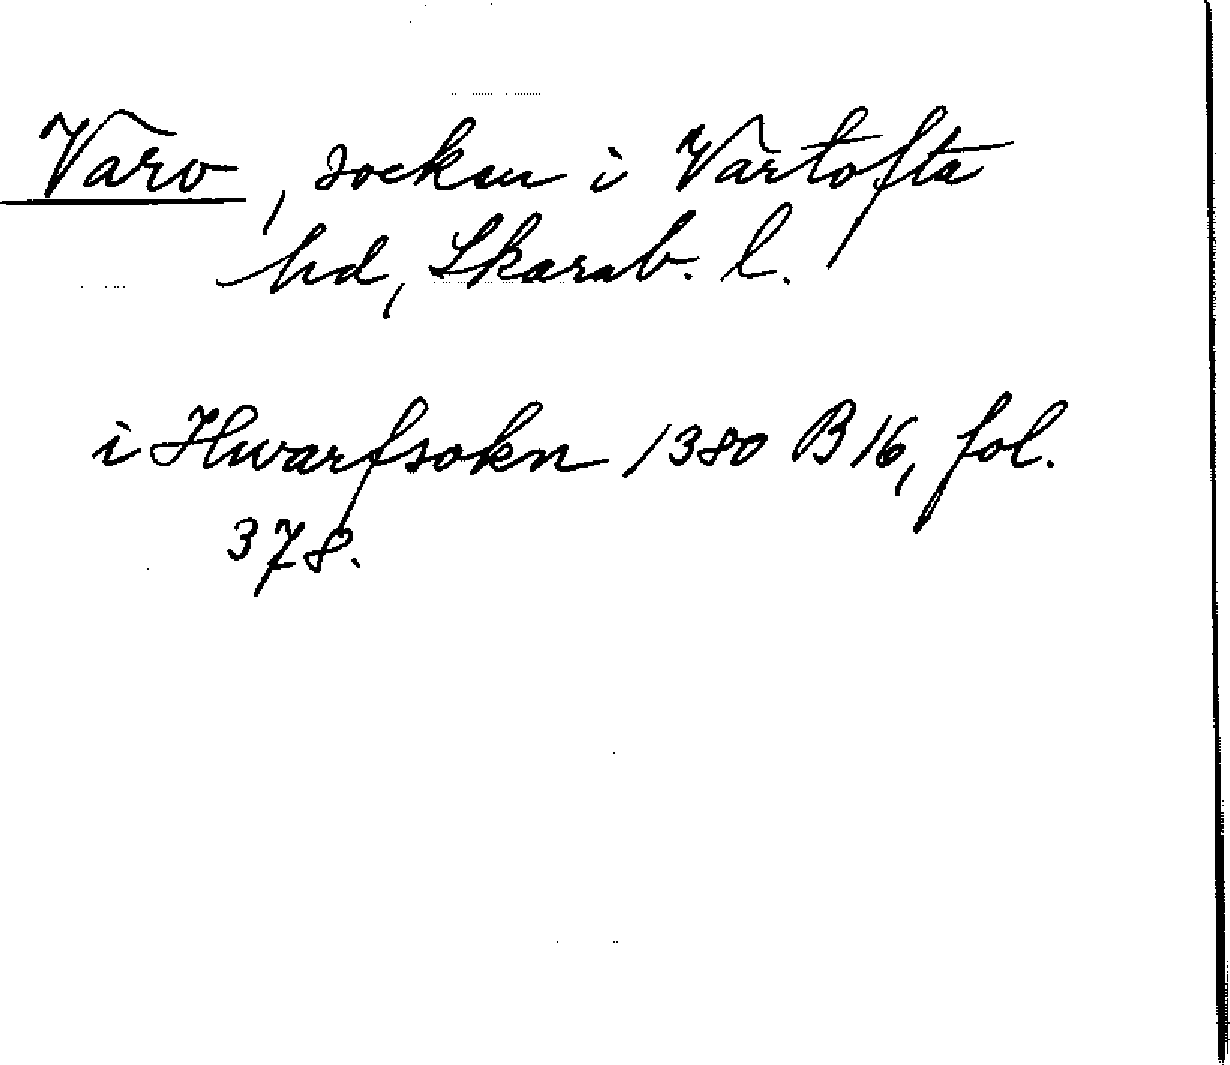 Varv, socken i Vartofta
hd, Skarab. l.
i Hwarfsokn 1380 B 16, fol.
378.